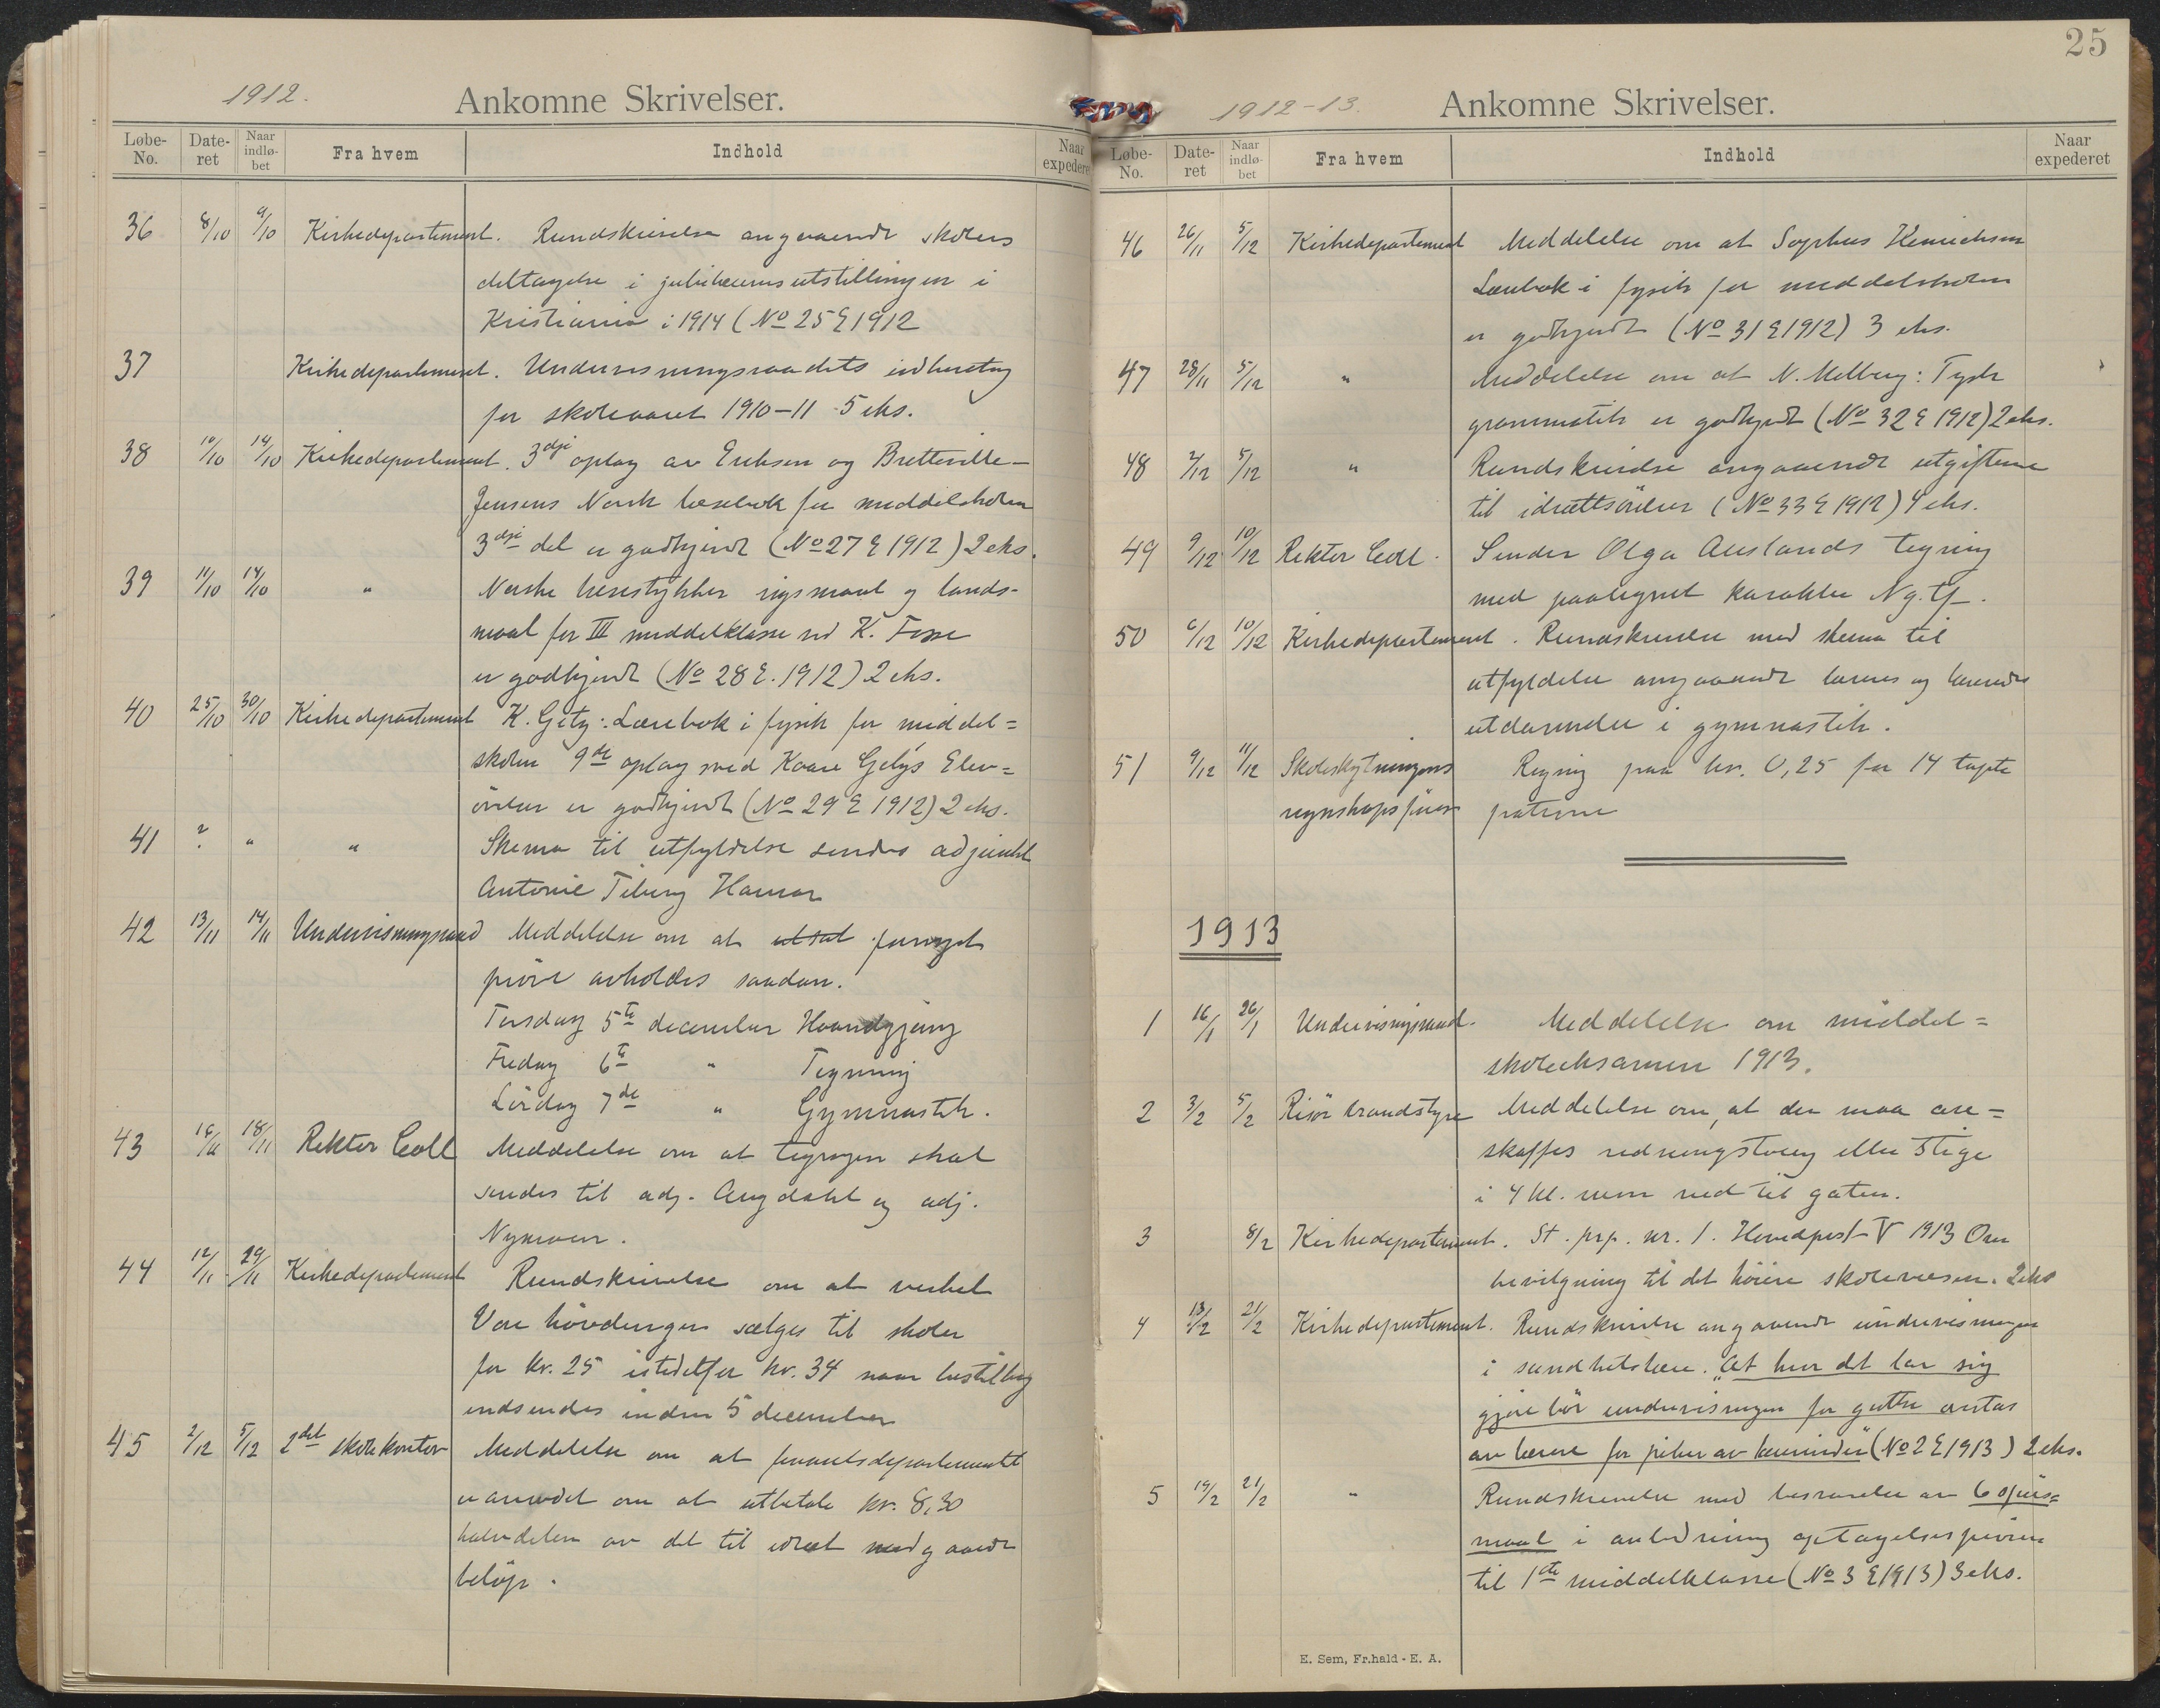 1912.
Ankomne Skrivelser.
Løbe-No. Dateret Naar indløbet Fra hvem Indhold Naar expederet
36 8/10 9/10 Kirkedepartement. Rundskrivelse angaaende skolers
deltagelse i jubilæumsutstillingen i
Kristiania i 1914 (No 25 E 1912
37 Kirkedepartement. Undervisningsraadets indberetng
for skoleaaret 1910-11 5 eks.
38 10/10 14/10 Kirkedepartement. 3dje oplag av Eriksen og Bretteville-
Jensens Norsk læsebok for middelskolen
3dje del er godkjendt (No 27 E 1912) 2 eks.
39 11/10 14/10 " Norske læsestykker rigsmaal og lands-
maal for III middelklasse ved K. Fosse
er godkjendt (No 28 E. 1912) 2 eks.
40 25/10 30/10 Kirkedepartement K. Getz: Lærebok i fysik for middel=
skolen 9de oplag med Kaare Getz's Elev=
övelser er godkjendt (No 29 E 1912) 2 eks.
41 ? " " Skema til utfyldelse sendes adjunkt
Antonie Tiberg Hamar
42 13/11 14/11 Undervisningsraad Meddelelse om at utsat fornyet
pröve avholdes saadan.
Torsdag 5te december Haandgjerng
Fredag 6te " Tegning
Lördag 7de " Gymnastik.
43 16/11 18/11 Rektor Coll Meddelelse om at tegningen skal
sendes til adj. Augdahl og adj.
Nymoen.
44 12/11 29/11 Kirkedepartement Rundskrivelse om at verket
Vore hövdinger sælges til skoler
for kr. 25 istedetfor kr. 34 naar bestilling
indsendes inden 5 december
45 2/12 5/12 2det skolekontor Meddelelse om at finantsdepartementet
er anmodet om at utbetale kr. 8,30
halvdelen av det til idræt medgaaede
belöp.
25
1912-13.
Ankomne Skrivelser.
Løbe-No. Dateret Naar indløbet Fra hvem Indhold Naar expederet
46 26/11 5/12 Kirkedepartement Meddelelse om at Sophus Henrichsen
Lærebok i fysik for middelskolen
er godkjendt (No 31 E 1912) 3 eks.
47 28/11 5/12 " Meddelelse om at N. Melberg: Tysk
grammatik er godkjendt (No 32 E 1912) 2 eks.
48 2/12 5/12 " Rundskrivelse angaaende utgifterne
til idrættsövelser (No 33 E 1912) 4 eks.
49 9/12 10/12 Rektor Coll. Sender Olga Auslands tegning
med paategnet karakter Ng. tf.
50 6/12 10/12 Kirkedepartement. Rundskrivelse med skema til
utfyldelse angaaende læreres og lærerinders
utdannelse i gymnastik.
51 9/12 11/12 Skoleskytningens Regning paa kr. 0,25 for 14 tapte
regnskapsförer patroner
1913
1 16/1 26/1 Undervisningsraad. Meddelelse om middel=
skoleeksamen 1913.
2 3/2 5/2 Risör brandstyre Meddelelse om, at der maa an=
skaffes redningstoug eller stige
i 4 kl. rum ned til gaten.
3 8/2 Kirkedepartement. St. prp. nr. 1. Hovedpost V 1913 Om
bevilgning til det höiere skolevæsen. 2 eks
4 13/2 21/2 Kirkedepartement. Rundskrivelse angaaende undervisningen
i sundhetslære. "At hvor det lar sig
gjöre bör undervisningen for gutter overtas
av lærere for piker av lærerinder" (No 2 E 1913) 2 eks.
5 19/2 21/2 " Rundskrivelse med besvarelse av 6 spörs=
maal i anledning optagelsespröven
til 1ste middelklasse (No 3 E 1913) 3 eks.
E. Sem, Fr.hald - E. A.